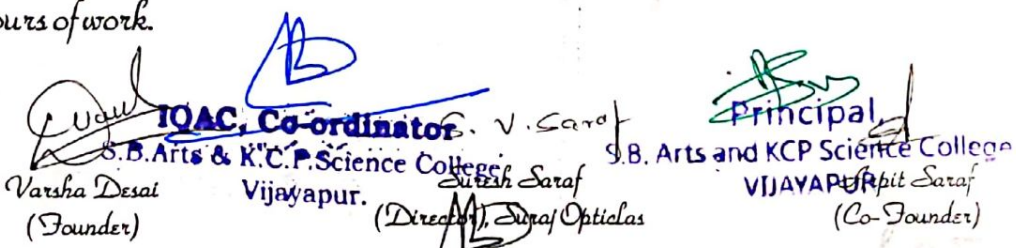 ours of work.
IQAC, Co-ordinator
S.B.Arts & K.C.P.Science College
Vijayapur.
S. V. Saraf
Principal,
S.B. Arts and KCP Science College
VIJAYAPUR
Varsha Desai
(Founder)
Suresh Saraf
(Director), Suraj Opticlas
Arpit Saraf
(Co-Founder)